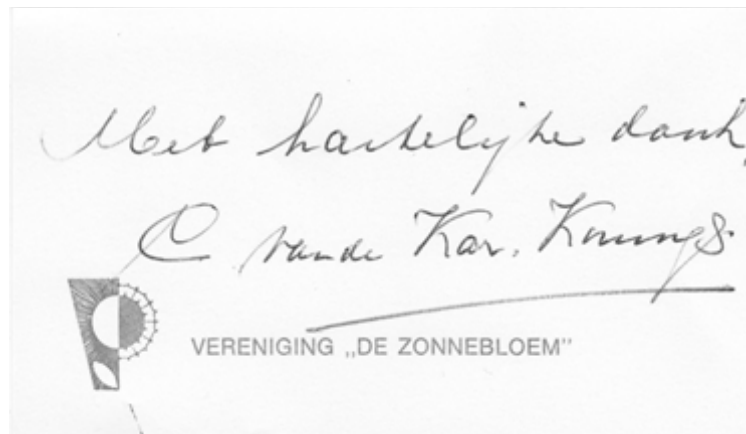 Met hartelijke dank,
C van de Kar. Konings.
VERENIGING „DE ZONNEBLOEM”